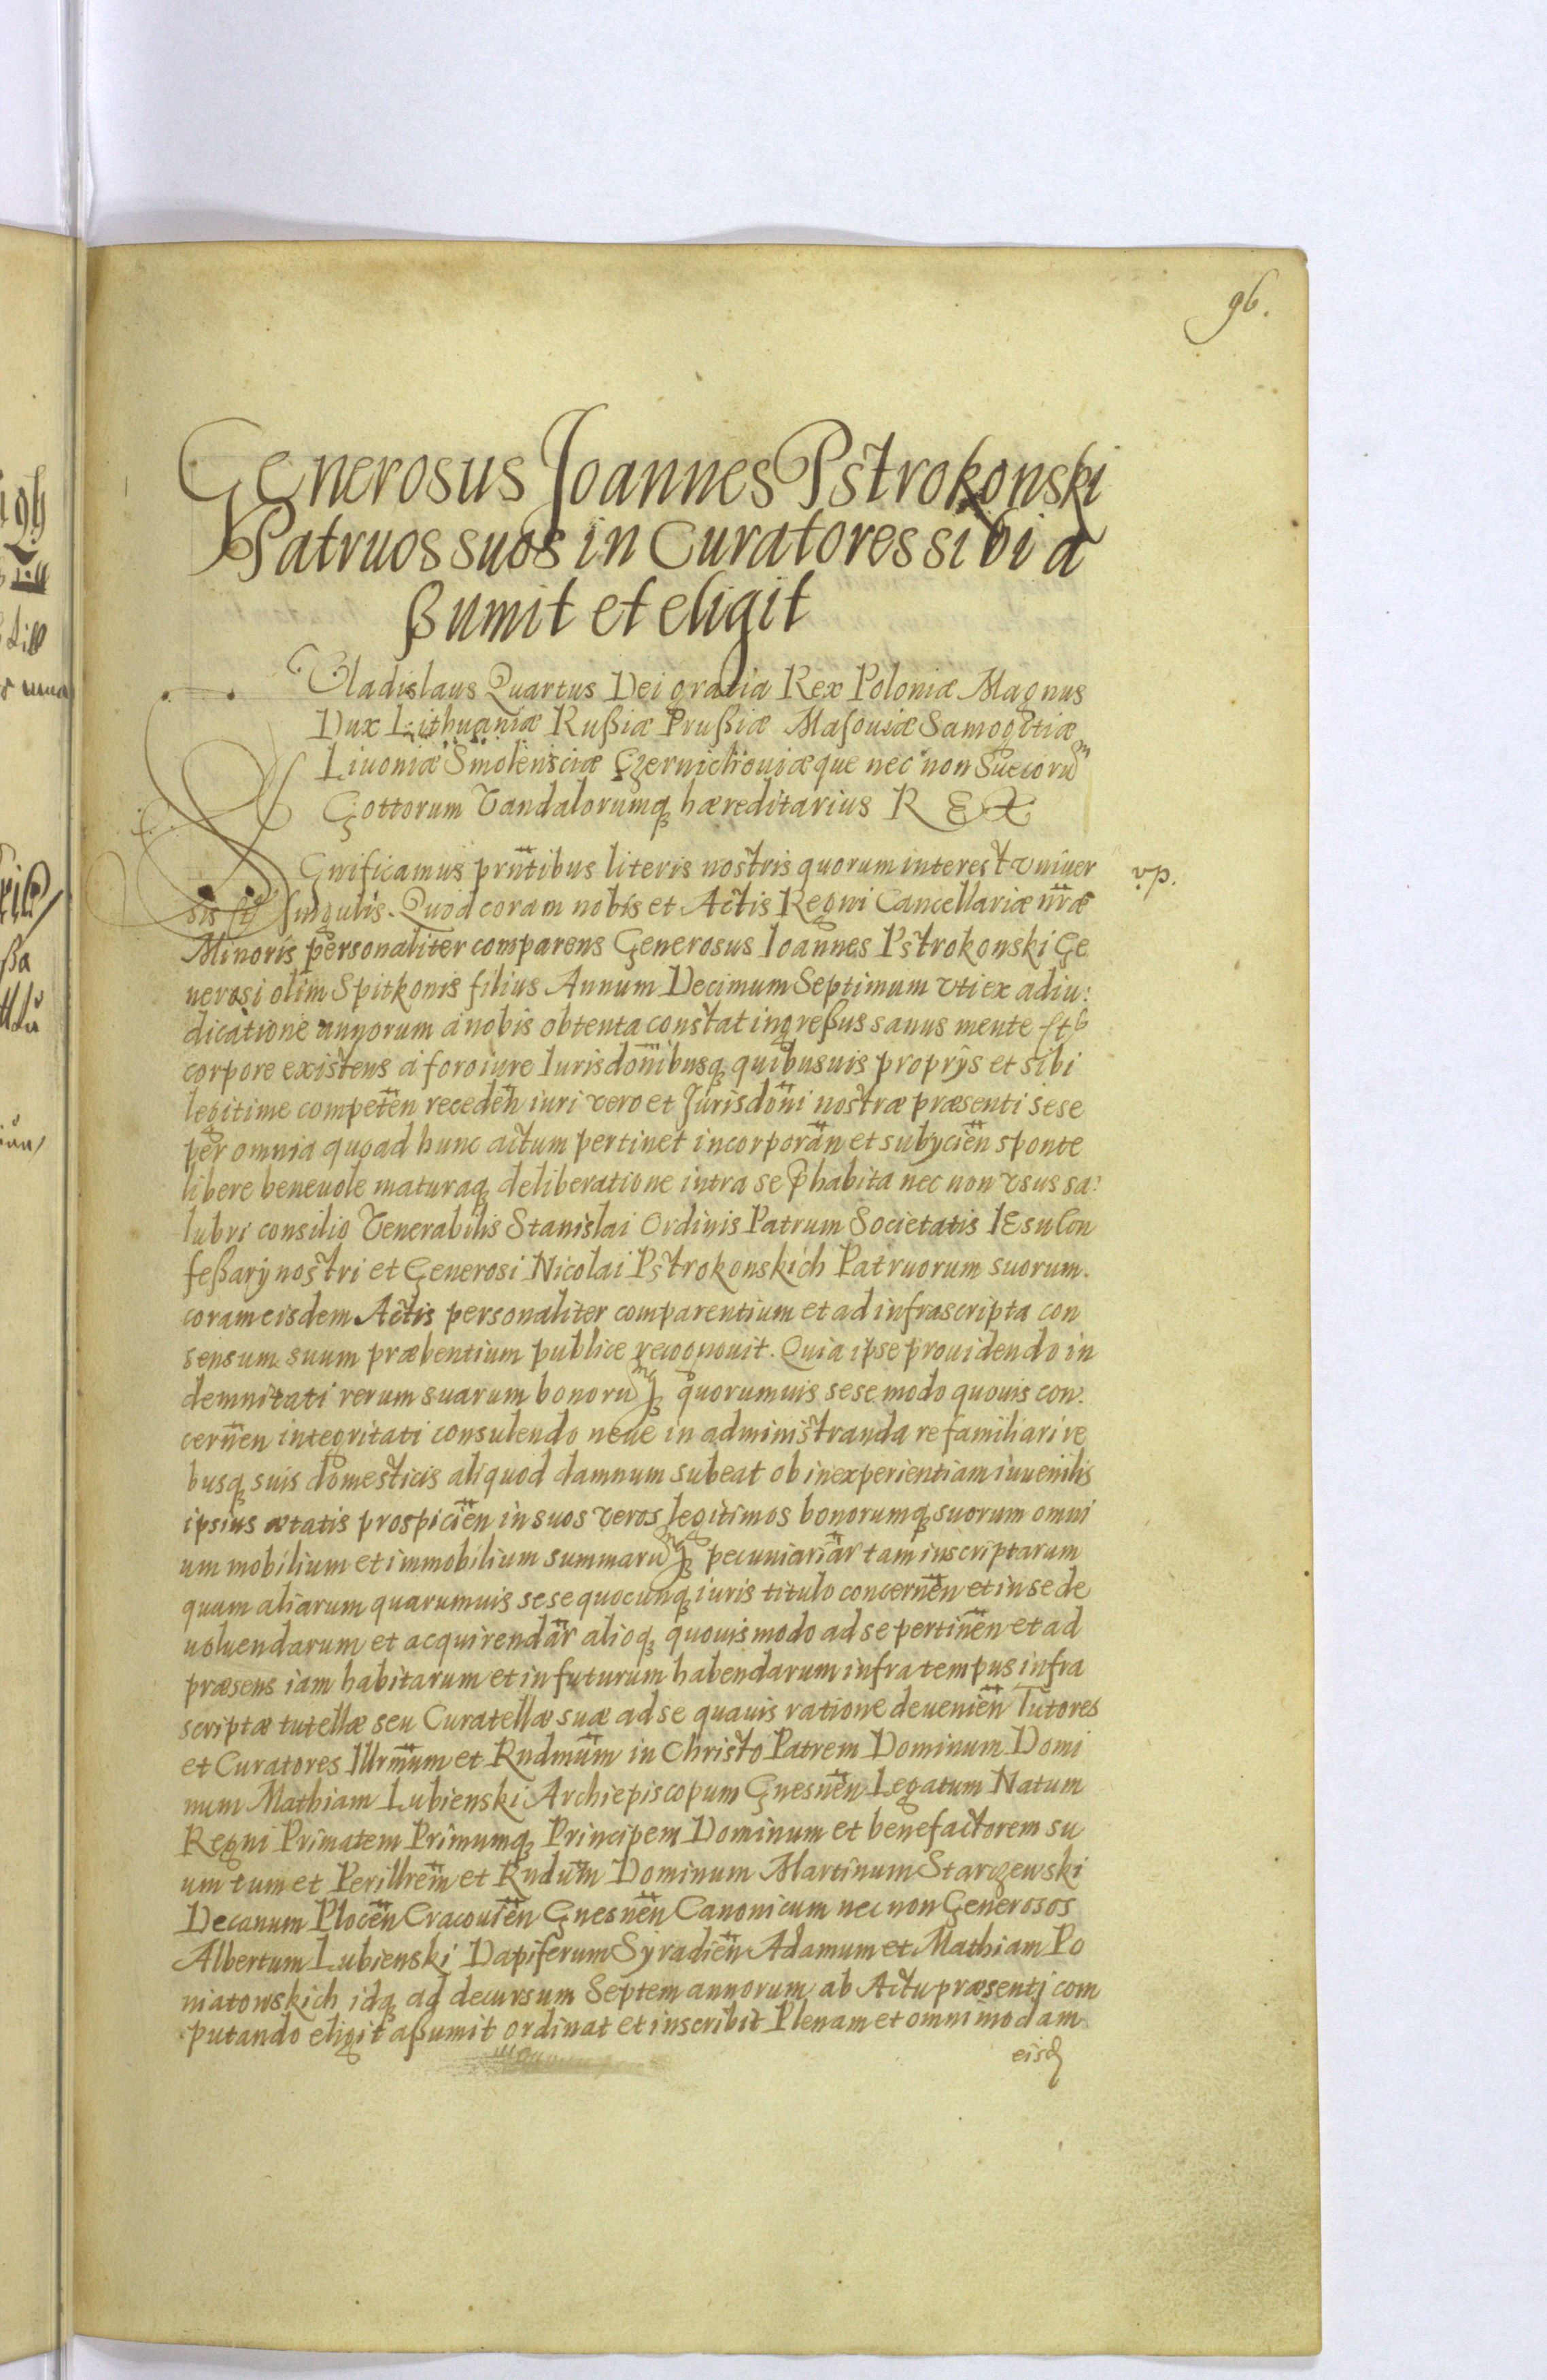 96.
Generosus Joannes Pstrokonski
Patruos suos in Curatores sibi a
ßumit et eligit
Vladislaus Quartus Dei gratia Rex Poloniæ Magnus
Dux Lithuaniæ Rußiæ Prußiæ Masouiæ Samogitiæ
Liuoniæ Smolensciæ Czernichouiæque nec non Suecorũ
Gottorum Vandalorumq hæreditarius REX
Significamus pñtibus literis nostris quorum interest vniuer
v.p.
sis et singulis. Quod coram nobis et Actis Regni Cancellariæ nr̃æ
Minoris personaliter comparens Generosus Ioannes Pstrokonski Ge
nerosi olim Spitkonis filius Annum Decimum Septimum vti ex adiu:
dicatione annorum à nobis obtenta constat ingreßus sanus mente et
corpore existens à foro iure Iurisdonibusq quibusuis proprijs et sibi
legitime competeñ recedeñ iuri vero et Jurisdoñi nostræ præsenti sese
per omnia quoad hunc actum pertinet incorporañ et subijcieñ sponte
libere beneuole maturaq deliberatione intra se p̃habita nec non vsus sa:
lubri consilio Venerabilis Stanislai Ordinis Patrum Societatis IEsu Con
feßarij nostri et Generosi Nicolai Pstrokonskich Patruorum suorum.
coram eisdem Actis personaliter comparentium et ad infrascripta con
sensum suum præbentium publice recognouit. Quia ipse prouidendo in
demnitati rerum suarum bonorũq quorumuis sese modo quouis con:
cerneñ integritati consulendo neue in administranda re familiari re
busq suis domesticis aliquod damnum subeat ob inexperientiam iuuenilis
ipsius ætatis prospicieñ in suos veros legitimos bonorumq suorum omni
um mobilium et immobilium summarũq pecuniariar̃ tam inscriptarum
quam aliarum quarumuis sese quocunq iuris titulo concerneñ et in se de
uoluendarum et acquirendar̃ alioq quouis modo ad se pertineñ et ad
præsens iam habitarum et in futurum habendarum infra tempus infra
scriptæ tutellæ seu Curatellæ suæ ad se quauis ratione deuenieñ Tutores
et Curatores Illrm̃um et Rndm̃um in Christo Patrem Dominum Domi
num Mathiam Lubienski Archiepiscopum Gnesneñ Legatum Natum
Regni Primatem Primumq Principem Dominum et benefactorem su
um tum et Perillrem̃ et Rndum̃ Dominum Martinum Starczewski
Decanum Ploceñ Cracouieñ Gnesneñ Canonicum nec non Generosos
Albertum Lubienski Dapiferum Syradieñ Adamum et Mathiam Po
niatowskich idq ad decursum Septem annorum ab Actu præsenti com
putando eligit aßumit ordinat et inscribit Plenam et omnimodam
eisd